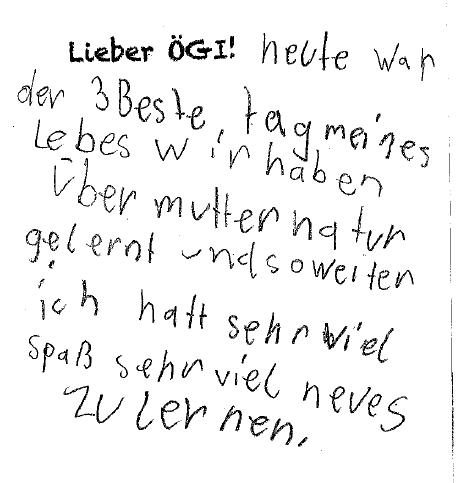 Lieber ÖGI! heute war
der 3 Beste, tag meines
Lebes wir haben
Über mutter natur
gelernt und so weiten
ich hatt sehr viel
spaß sehr viel neues
zu lernen.